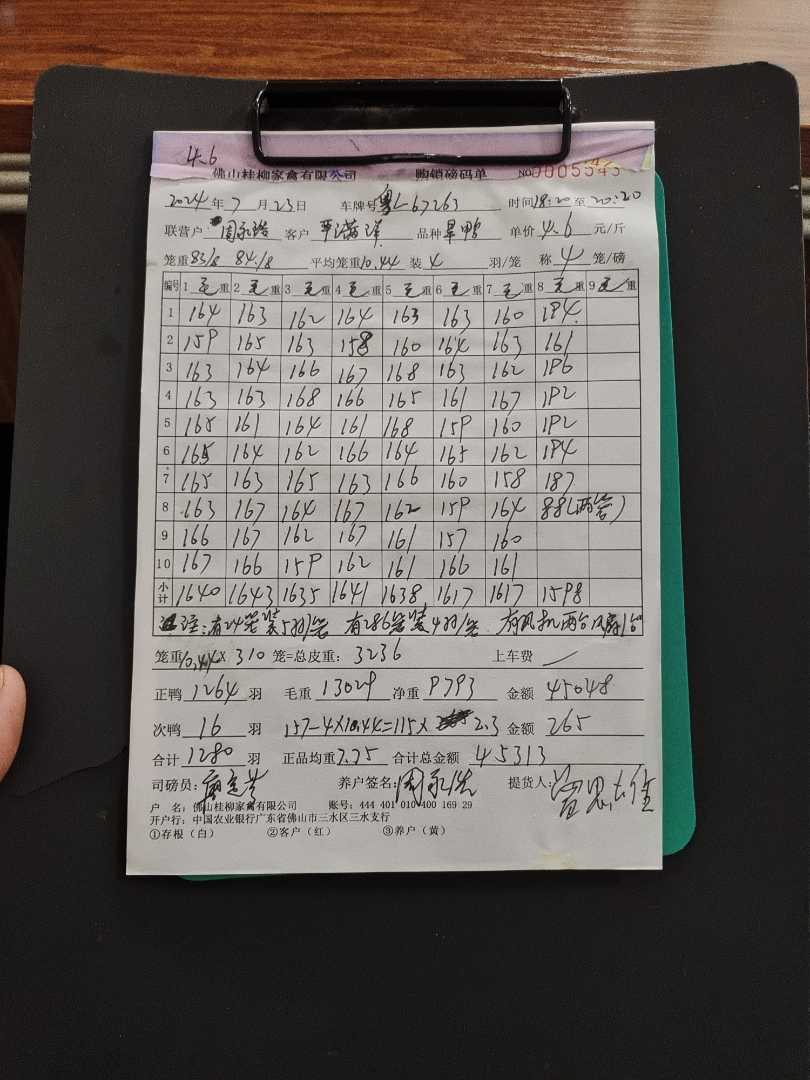 4.6
佛山桂柳家禽有限公司 购销磅码单 NO0005545
2024年7月23日 车牌号粤L67263 时间18:20至20:20
联营户 客户 品种 旱鸭 单价4.6元/斤
笼重83/8 84/8 平均笼重10.44装4羽/笼 称4笼/磅
编号 1毛重 2毛重 3毛重 4毛重 5毛重 6毛重 7毛重 8毛重 9毛重
1 164 163 162 164 163 163 160 194
2 159 165 163 158 160 164 163 161
3 163 164 166 167 168 163 162 196
4 163 163 168 166 165 161 167 192
5 165 161 164 161 168 159 160 192
6 165 164 162 166 164 165 162 194
7 165 163 165 163 166 160 158 187
8 163 167 164 167 162 159 164 88(两笼)
9 166 167 162 167 161 157 160
10 167 166 159 162 161 166 161
小计 1640 1643 1635 1641 1638 1617 1617 1598
注:有24笼装5羽/笼 有286笼装4羽/笼 有风机两台风扇1台
笼重10.44X310笼=总皮重:3236 上车费
正鸭1264羽 毛重13029净重9793 金额45048
次鸭16羽 157-4X10.44=115X2.3金额265
合计1280羽 正品均重7.75合计总金额45313
司磅员: 养户签名: 提货人:
户 名:佛山桂柳家禽有限公司 账号:444 401 010 400 169 29
开户行:中国农业银行广东省佛山市三水区三水支行
①存根(白) ②客户(红) ③养户(黄)